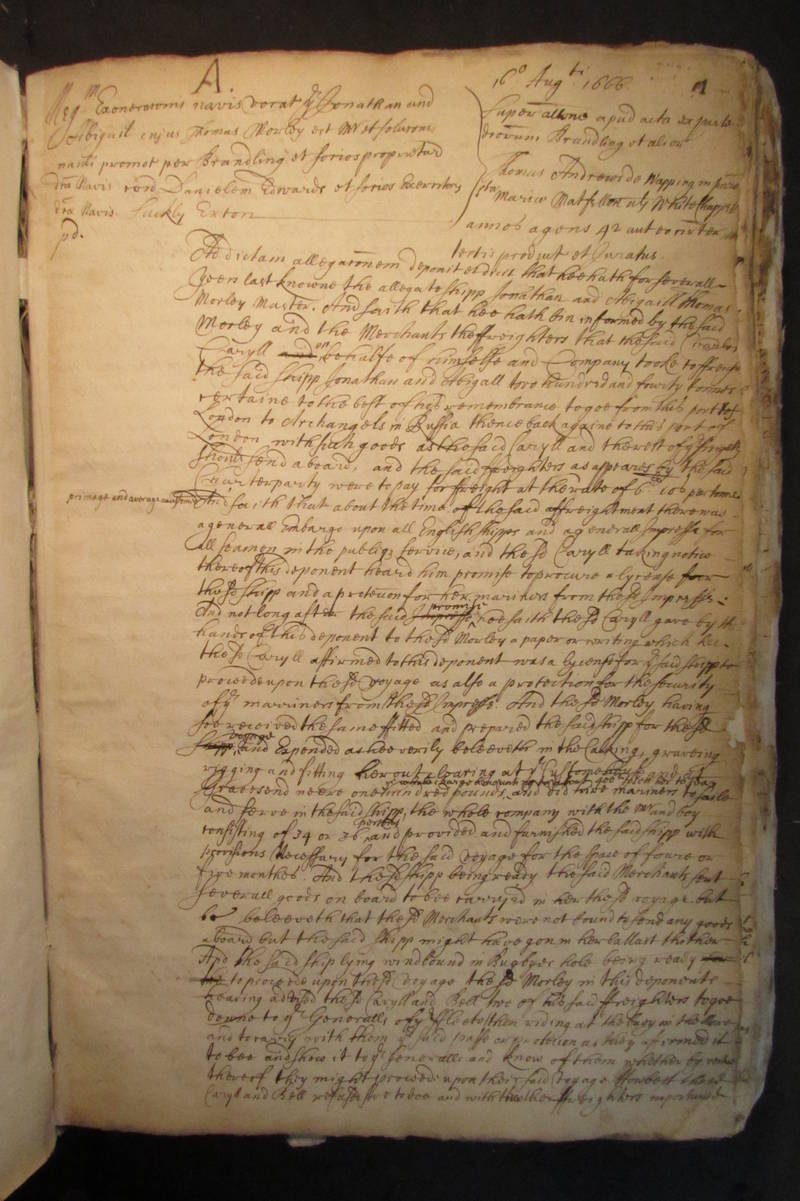 A.
16o Augti 1666
Negm Exonerationis navis vocat ye Jonathan and
Abigail cujus Thomas Morley est Mr et solutionis
nauli promot per Brandling et socios proprietar
dca Navis con Danielem Edwards et socios Exercitory
dca Navis. Suckly Exton
pd.
Super allone apud acta ex parte
Brandling et alior
Thomas Andrewes de Wapping in paro
cia Mariae Matfellon als White Chappell
annos agens 42 aut eo circiter
testis product et Juratus.
Ad dictam allegaconem deponit et dicit that hee hath for severall
yeers last knowne the allegate shipp Jonathan and Abigaill Thomas
Morley Master. And saith that hee hath bin informed by the said
Morley and the Merchants the ffreighters that the said
Caryll and on behalfe of himselfe and Company tooke to ffreight
the said shipp Jonathan and Abigall two hundred and fourty tonnes
certaine to the best of his remembrance to goe from this port of
London to Archangele in Russia thence back againe to this port of
London with such goods as the said Caryll and the rest of ye ffreighters
should send aboard, and the said ffreighters as appeares by the said
Charterparty were to pay for ffreight at the rate of 6li 10s per tonne
primage and average accustomed And saith that about the time of the said affreightment there was
a generall Embargo upon all English shipps and a generall Impresse for
all seamen in the publiq service, and the sd Caryll taking notice
thereof this deponent heard him promise to procure a lycense for
the sd shipp and a proteccon for her mariners from the sd Impresse.
And not long after the said Impresse promise hee saith the sd Caryll gave by the
hands of this deponent to the sd Morley a paper or writing which hee
the sd Caryll affirmed to this deponent was a lycense for ye said shipp to
proceede upon the sd voyage as also a protection for the security
of ye mariners from the sd Impresse. And the sd Morley having
soe received the same ffitted and prepared the said shipp for the sd
shipp voyage, and Expended as hee verily beleeveth in the Calking, graveing
rigging and fitting her out & clearing at ye Custome house
Gravesend neere one hundred pounds, and did hire mariners to saile
and serve in the said shipp, the whole company with the Mr and boy
consisting of 34 or 36 persons, and provided and furnished the said shipp with
provisions Necessary for the said voyage for the space of foure or
five monthes. And the sd shipp being ready the said Merchants sent
severall goods on board to bee carryed in her the sd voyage but
beleeveth that the sd Merchants were not bound to send any goods
aboard but the said shipp might have gon in her ballast thether
And the said ship lying windbound in Bugbyes hole being ready
to proceede upon the sd voyage the sd Morley in this deponents
hearing advised the sd Caryll and Bell two of the said ffreighters to goe
downe to ye Generalls of ye ffleete then riding at the buoy in the Nore
and to carry with them ye said passe or proteccon as they affirmed it
to bee and show it to ye Generalls and know of them whether by vertue
thereof they might proceede upon their said voyage Howbeit the sd
Caryll and Bell refused soe to doe and with the other ffreighters importuned